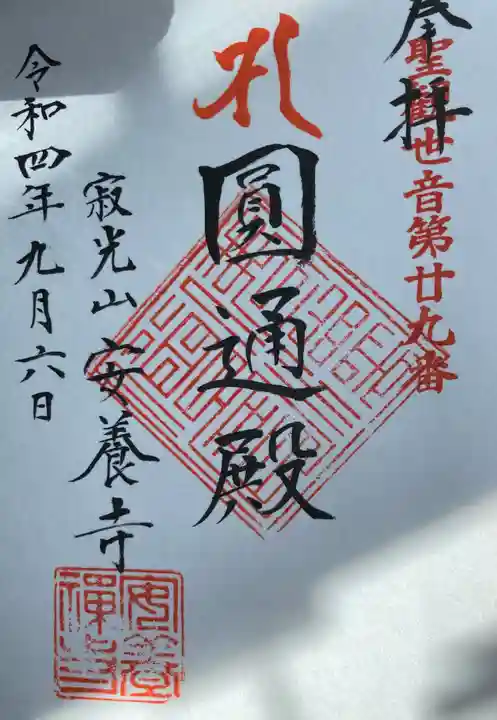 奉拝
聖観世音第廿九番
圓通殿
寂光山安養寺
令和四年九月六日